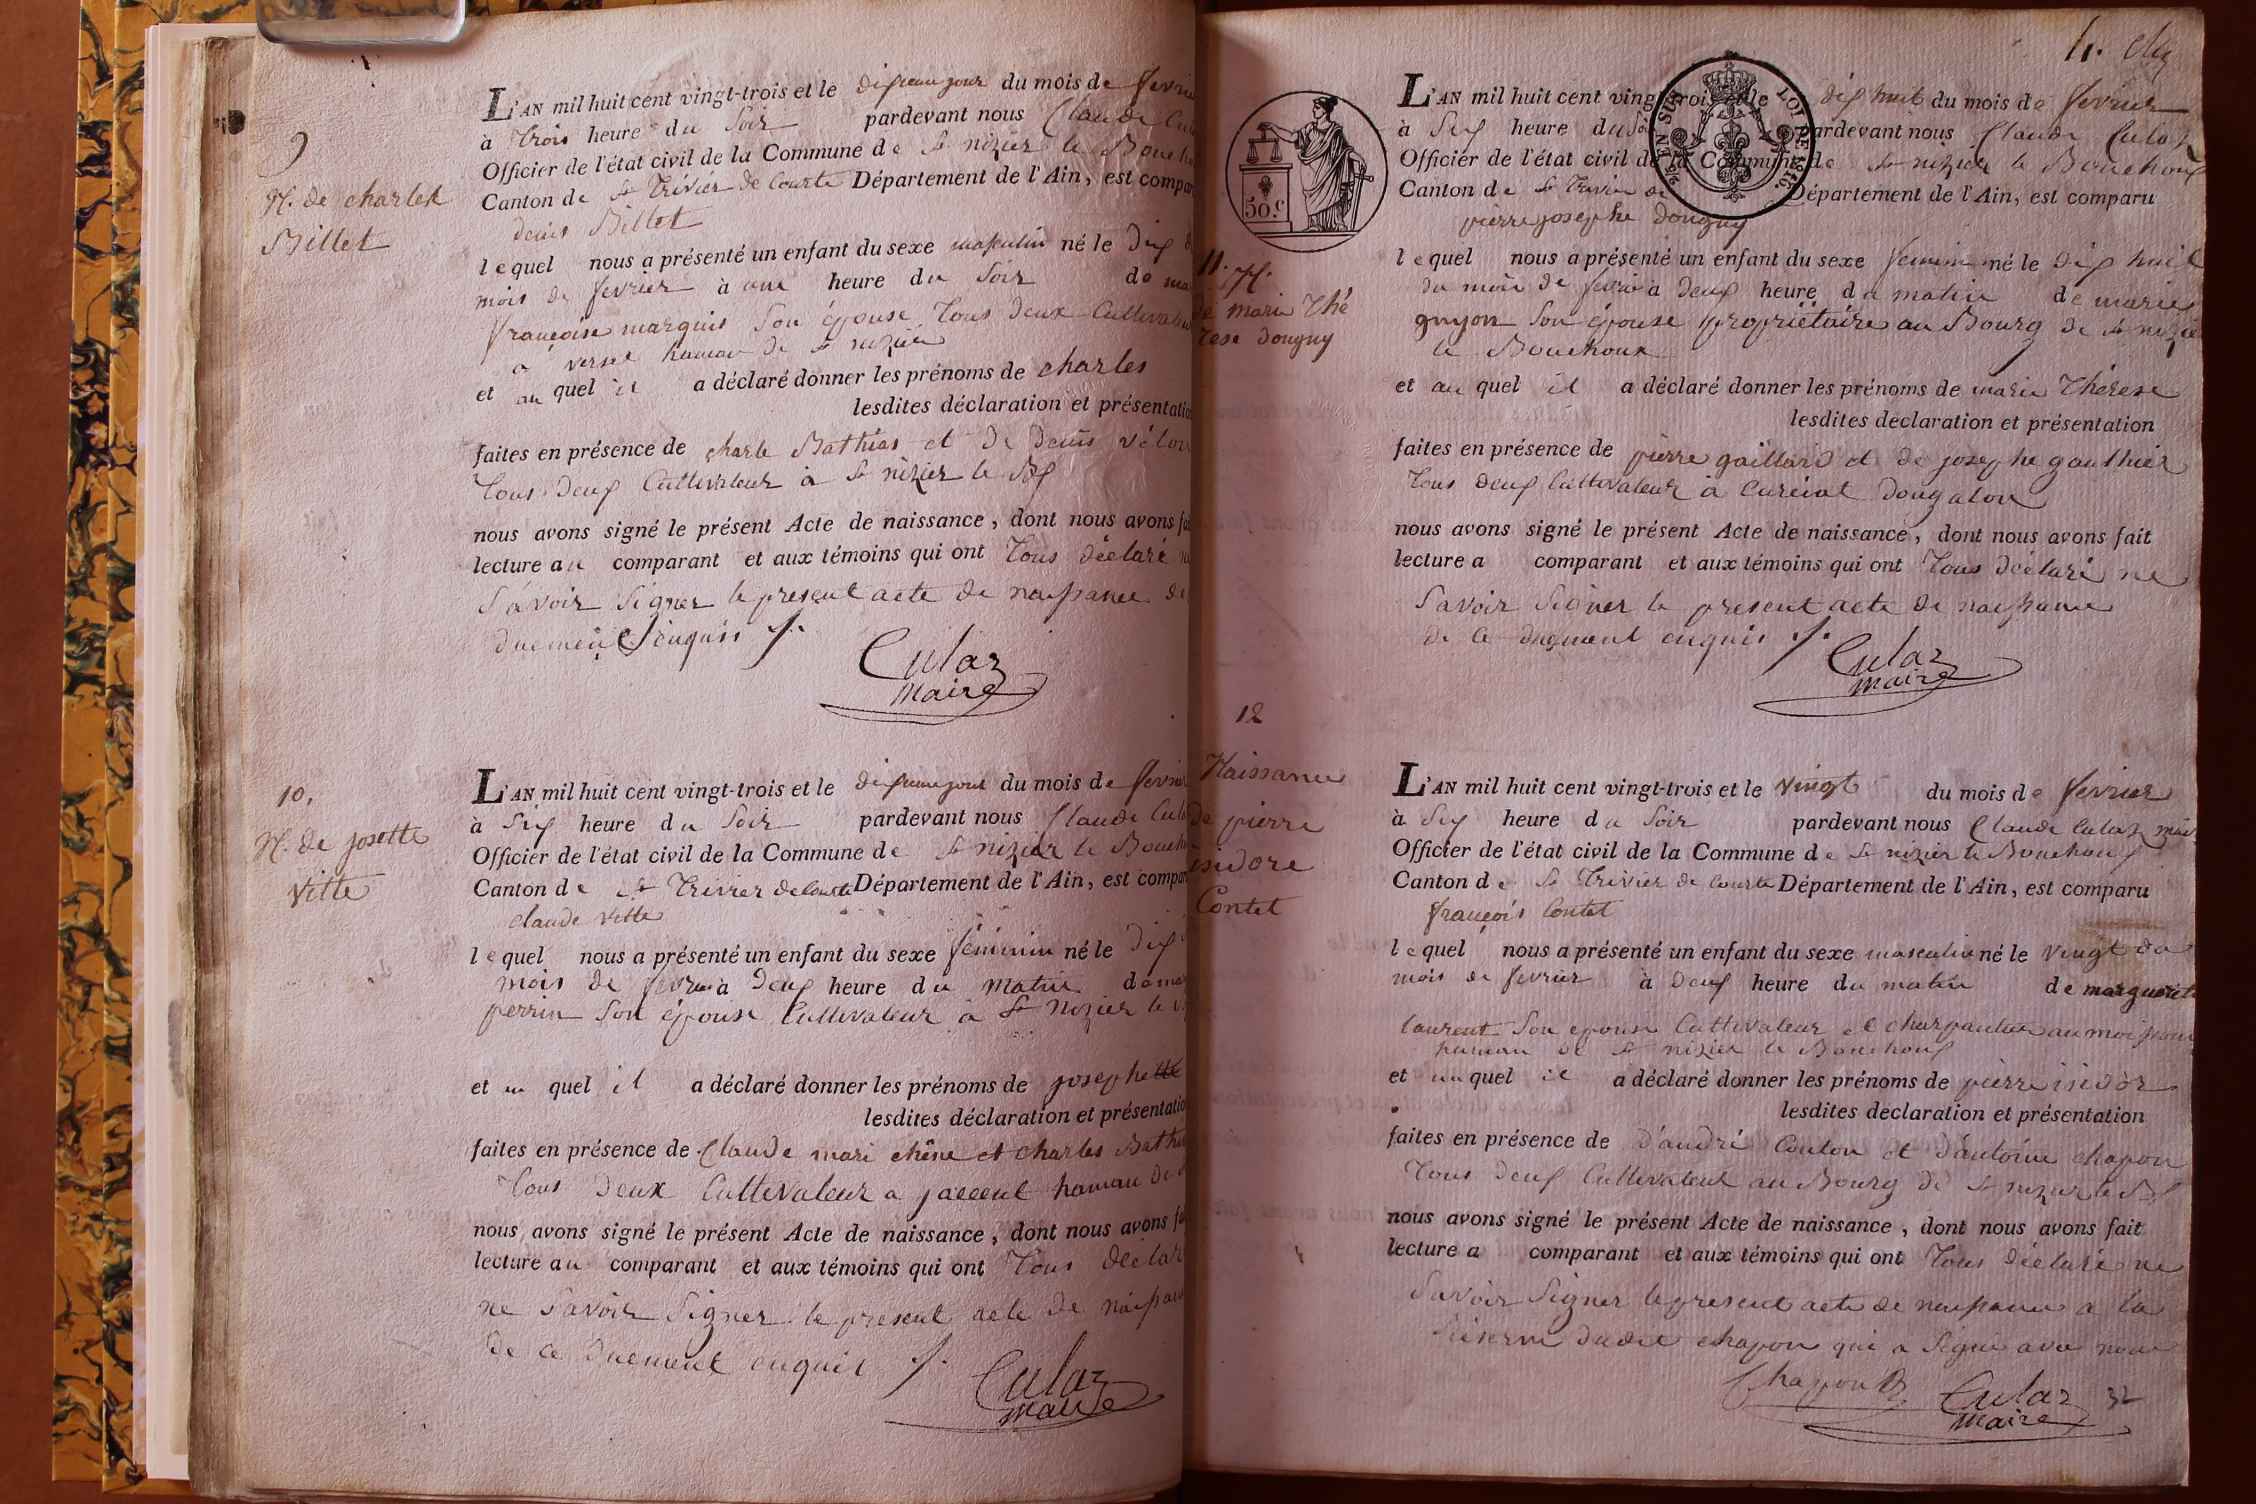 9
N. de charles
Billet
L'AN mil huit cent vingt-trois et le dixieme jour du mois de fevrier
à trois heure du soir pardevant nous Claude Culaz
Officier de l'état civil de la Commune de St nizier le Bouchoux
Canton de St Trivier de Courte Département de l'Ain, est comparu
denis Billet
lequel nous a présenté un enfant du sexe masculin né le Dix
mois de fevrier à une heure du soir de
françoise marquis son épouse Tous deux Cultivateur
a hamau de St nizier
et au quel il a déclaré donner les prénoms de charles
lesdites déclaration et présentation
faites en présence de charle Mathias et de denis
Tous deux Cultivateur à St nizier le Bx
nous avons signé le présent Acte de naissance, dont nous avons fait
lecture au comparant et aux témoins qui ont Tous déclaré ne
savoir signer le present acte de naissance de
duement enquis
Culaz
maire
10.
N. de josette
vitte
L'AN mil huit cent vingt-trois et le dixieme jour du mois de fevrier
à Six heure du Soir pardevant nous Claude Culaz
Officier de l'état civil de la Commune de St nizier le Bouchoux
Canton de St Trivier de Courte Département de l'Ain, est comparu
claude vitte
lequel nous a présenté un enfant du sexe féminin né le Dix
mois de fevrier à Deux heure du matin de
perrin son épouse Cultivateur à St nizier le
et au quel il a déclaré donner les prénoms de josephette
lesdites déclaration et présentation
faites en présence de Claude mari chêne et charles
Tous Deux Cultivateur a hamau de
nous avons signé le présent Acte de naissance, dont nous avons fait
lecture au comparant et aux témoins qui ont Tous déclaré
ne savoir signer le present acte de naissance
de ce duement enquis
Culaz
maire
11. N.
de marie Thé
rese Douguy
50.c
EN SUS LOI DE 1816.
L'AN mil huit cent vingt-trois et le dix huit du mois de fevrier
à Six heure du Soir pardevant nous Claude Culaz
Officier de l'état civil de la Commune de St nizier le Bouchoux
Canton de St Trivier de Département de l'Ain, est comparu
pierre josephe Douguy
lequel nous a présenté un enfant du sexe feminin né le dix huit
du mois de fevrier à deux heure du matin de marie
guyon son épouse propriétaire au Bourg de St nizier
le Bouchoux
et au quel il a déclaré donner les prénoms de marie Thérese
lesdites declaration et présentation
faites en présence de pierre gaillard et de josephe gauthier
Tous deux Cultivateur à Curciat Dongalon
nous avons signé le présent Acte de naissance, dont nous avons fait
lecture a comparant et aux témoins qui ont Tous déclaré ne
savoir signer le present acte de naissance
de ce duement enquis
Culaz
maire
12
Naissance
de pierre
isidore
Contet
L'AN mil huit cent vingt-trois et le vingt du mois de fevrier
à Six heure du Soir pardevant nous Claude Culaz maire
Officier de l'état civil de la Commune de St nizier le Bouchoux
Canton de St Trivier de Courte Département de l'Ain, est comparu
françois Contet
lequel nous a présenté un enfant du sexe masculin né le vingt du
mois de fevrier à deux heure du matin de marguerite
laurent son epouse Cultivateur et charpantier au
hamau de St nizier le Bouchoux
et au quel il a déclaré donner les prénoms de pierre isidor
lesdites declaration et présentation
faites en présence de d'andré Couton et d'antoine chapon
Tous deux Cultivateur au Bourg de St nizier le Bx
nous avons signé le présent Acte de naissance, dont nous avons fait
lecture a comparant et aux témoins qui ont Tous déclaré ne
savoir signer le present acte de naissance a la
réserve dudit chapon qui a signé avec nous
Chappon
Culaz
maire